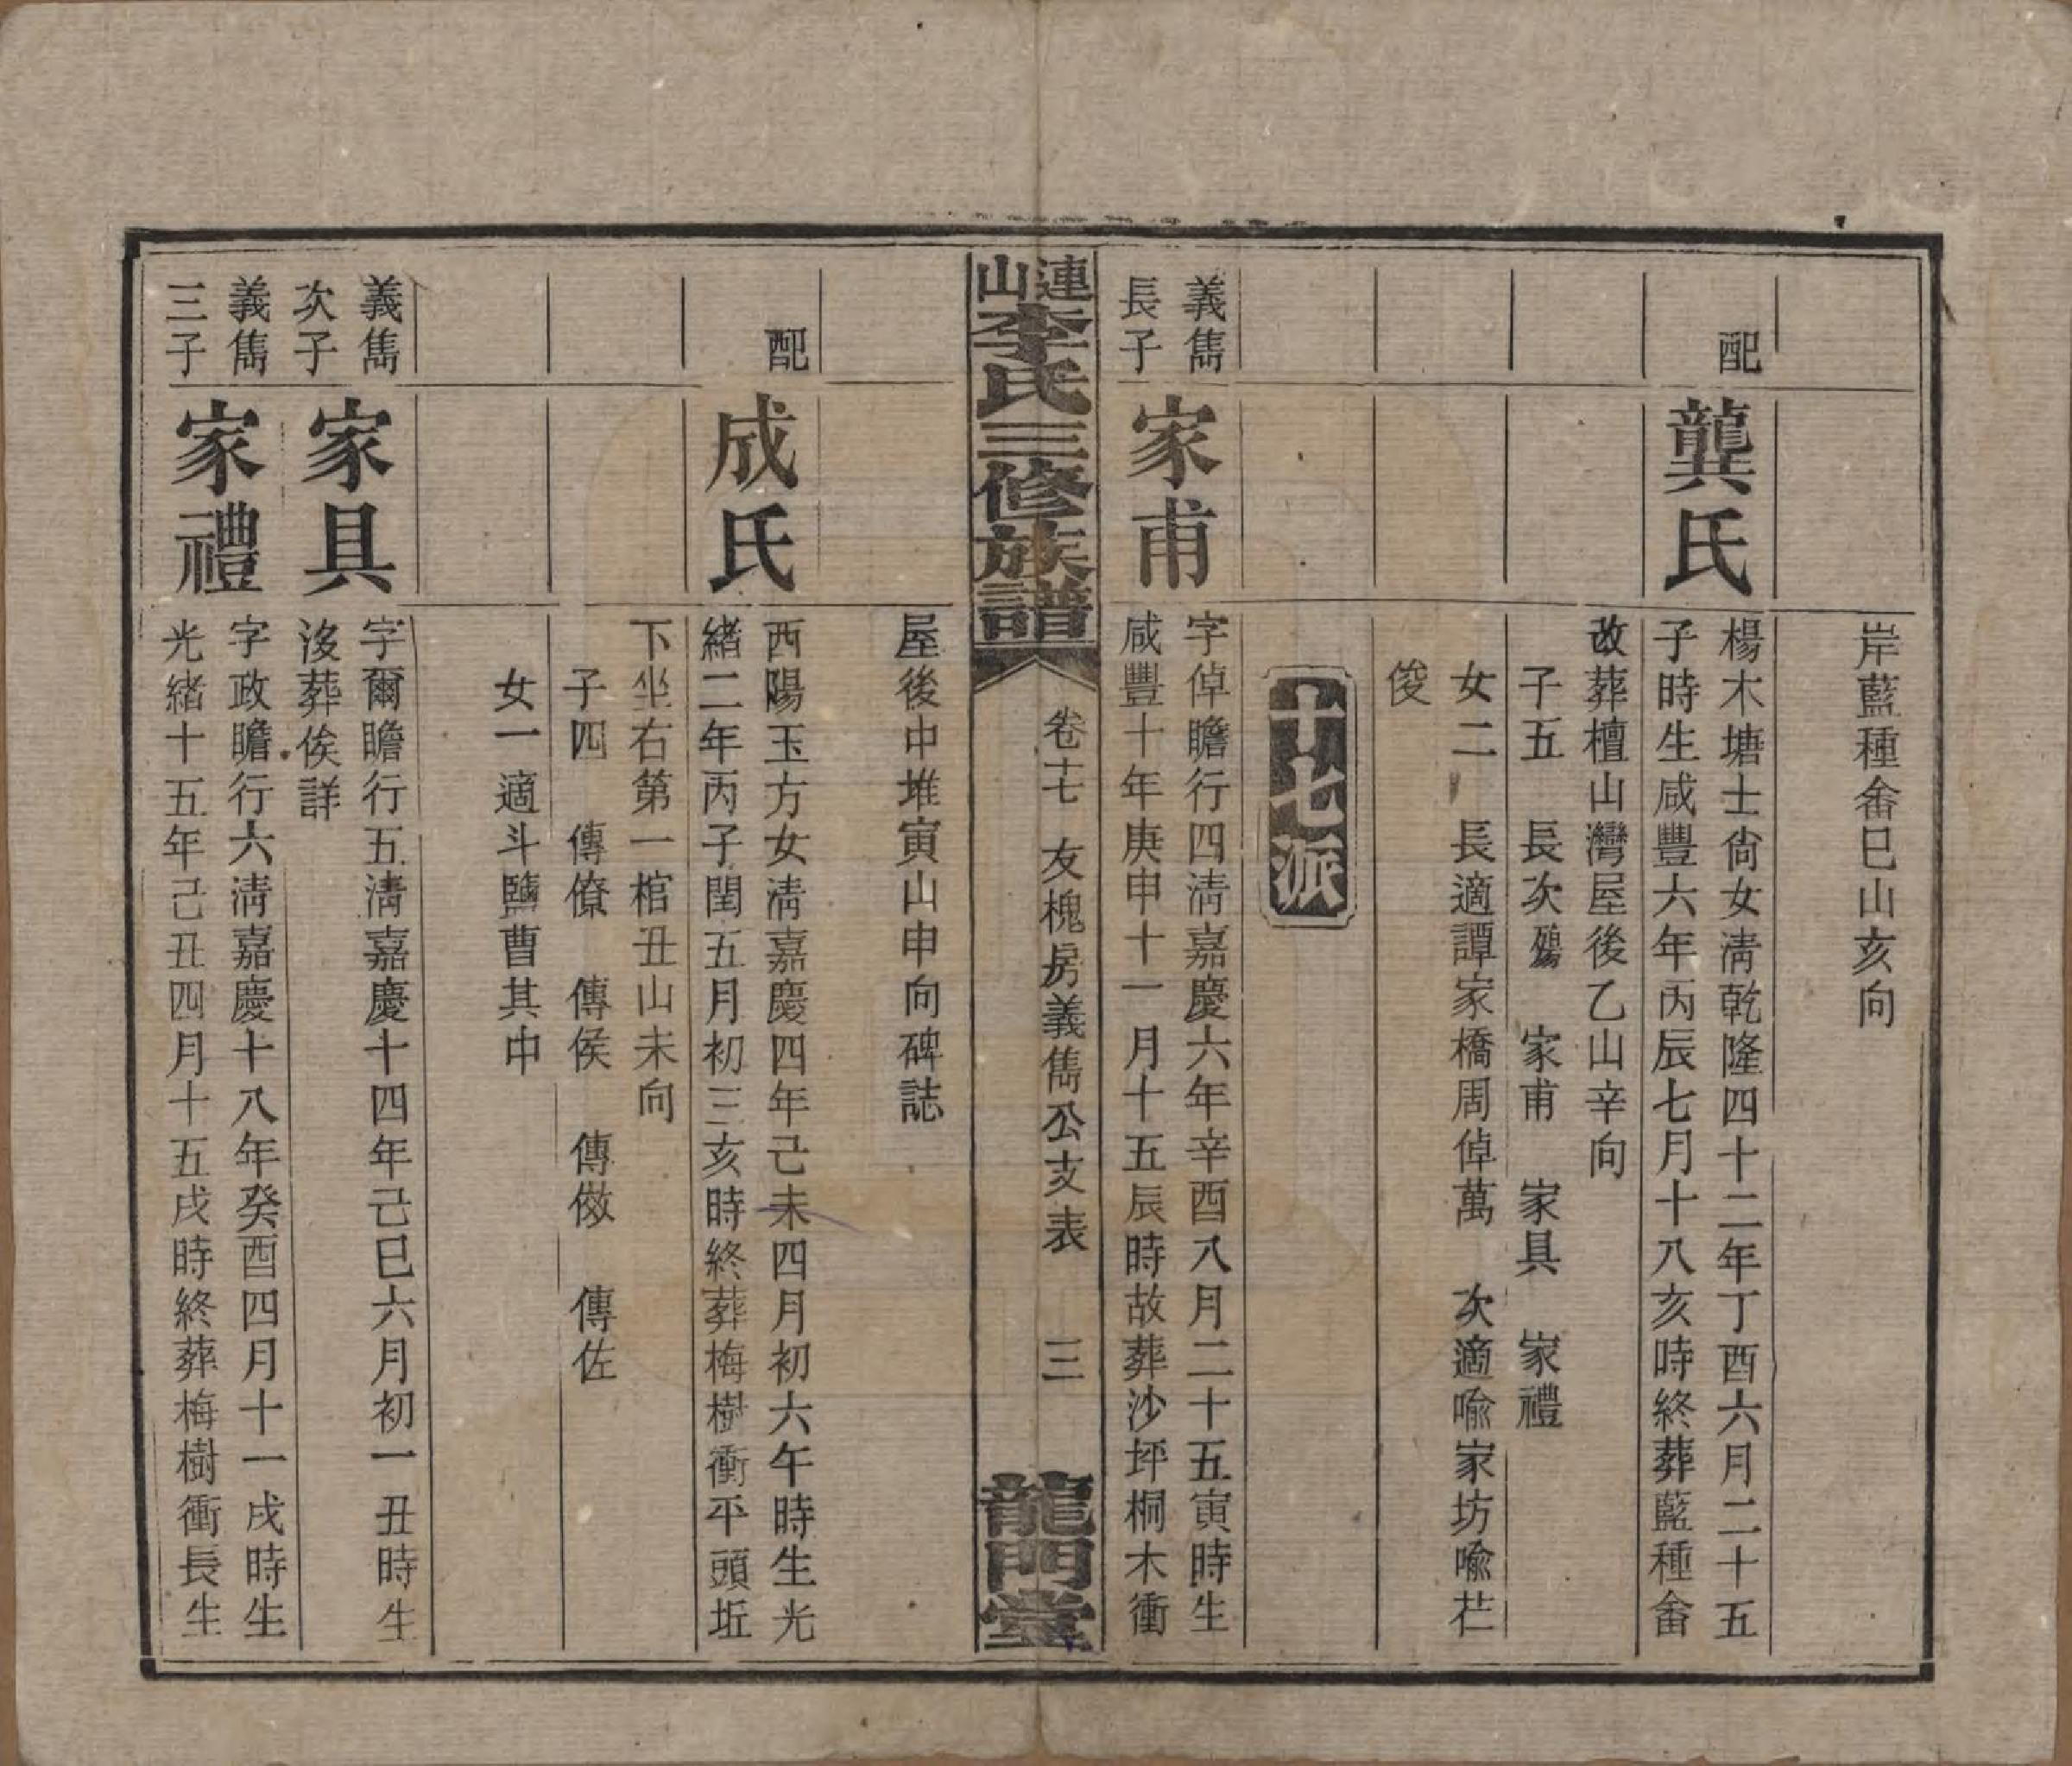 岸藍種畬巳山亥向
配
龔氏
楊木塘士尙女淸乾隆四十二年丁酉六月二十五
子時生咸豐六年丙辰七月十八亥時終葬藍種畬
改葬檀山灣屋後乙山辛向
子五　長次殤　家甫　家具　家禮
女二　長適譚家橋周倬萬　次適喻家坊喻芒
俊
十七派
義雋
長子
家甫
字倬瞻行四淸嘉慶六年辛酉八月二十五寅時生
咸豐十年庚申十一月十五辰時故葬沙坪桐木衝
連山李氏三修族譜
卷十七　友槐房義雋公支表　三
龍門堂
屋後中堆寅山申向碑誌
配
成氏
西陽玉方女淸嘉慶四年己未四月初六午時生光
緒二年丙子閏五月初三亥時終葬梅樹衝平頭坵
下坐右第一棺丑山未向
子四　傳僚　傳侯　傳倣　傳佐
女一適斗鹽曹其中
義雋
次子
家具
字爾瞻行五淸嘉慶十四年己巳六月初一丑時生
沒葬俟詳
義雋
三子
家禮
字政瞻行六淸嘉慶十八年癸酉四月十一戌時生
光緒十五年己丑四月十五戌時終葬梅樹衝長生